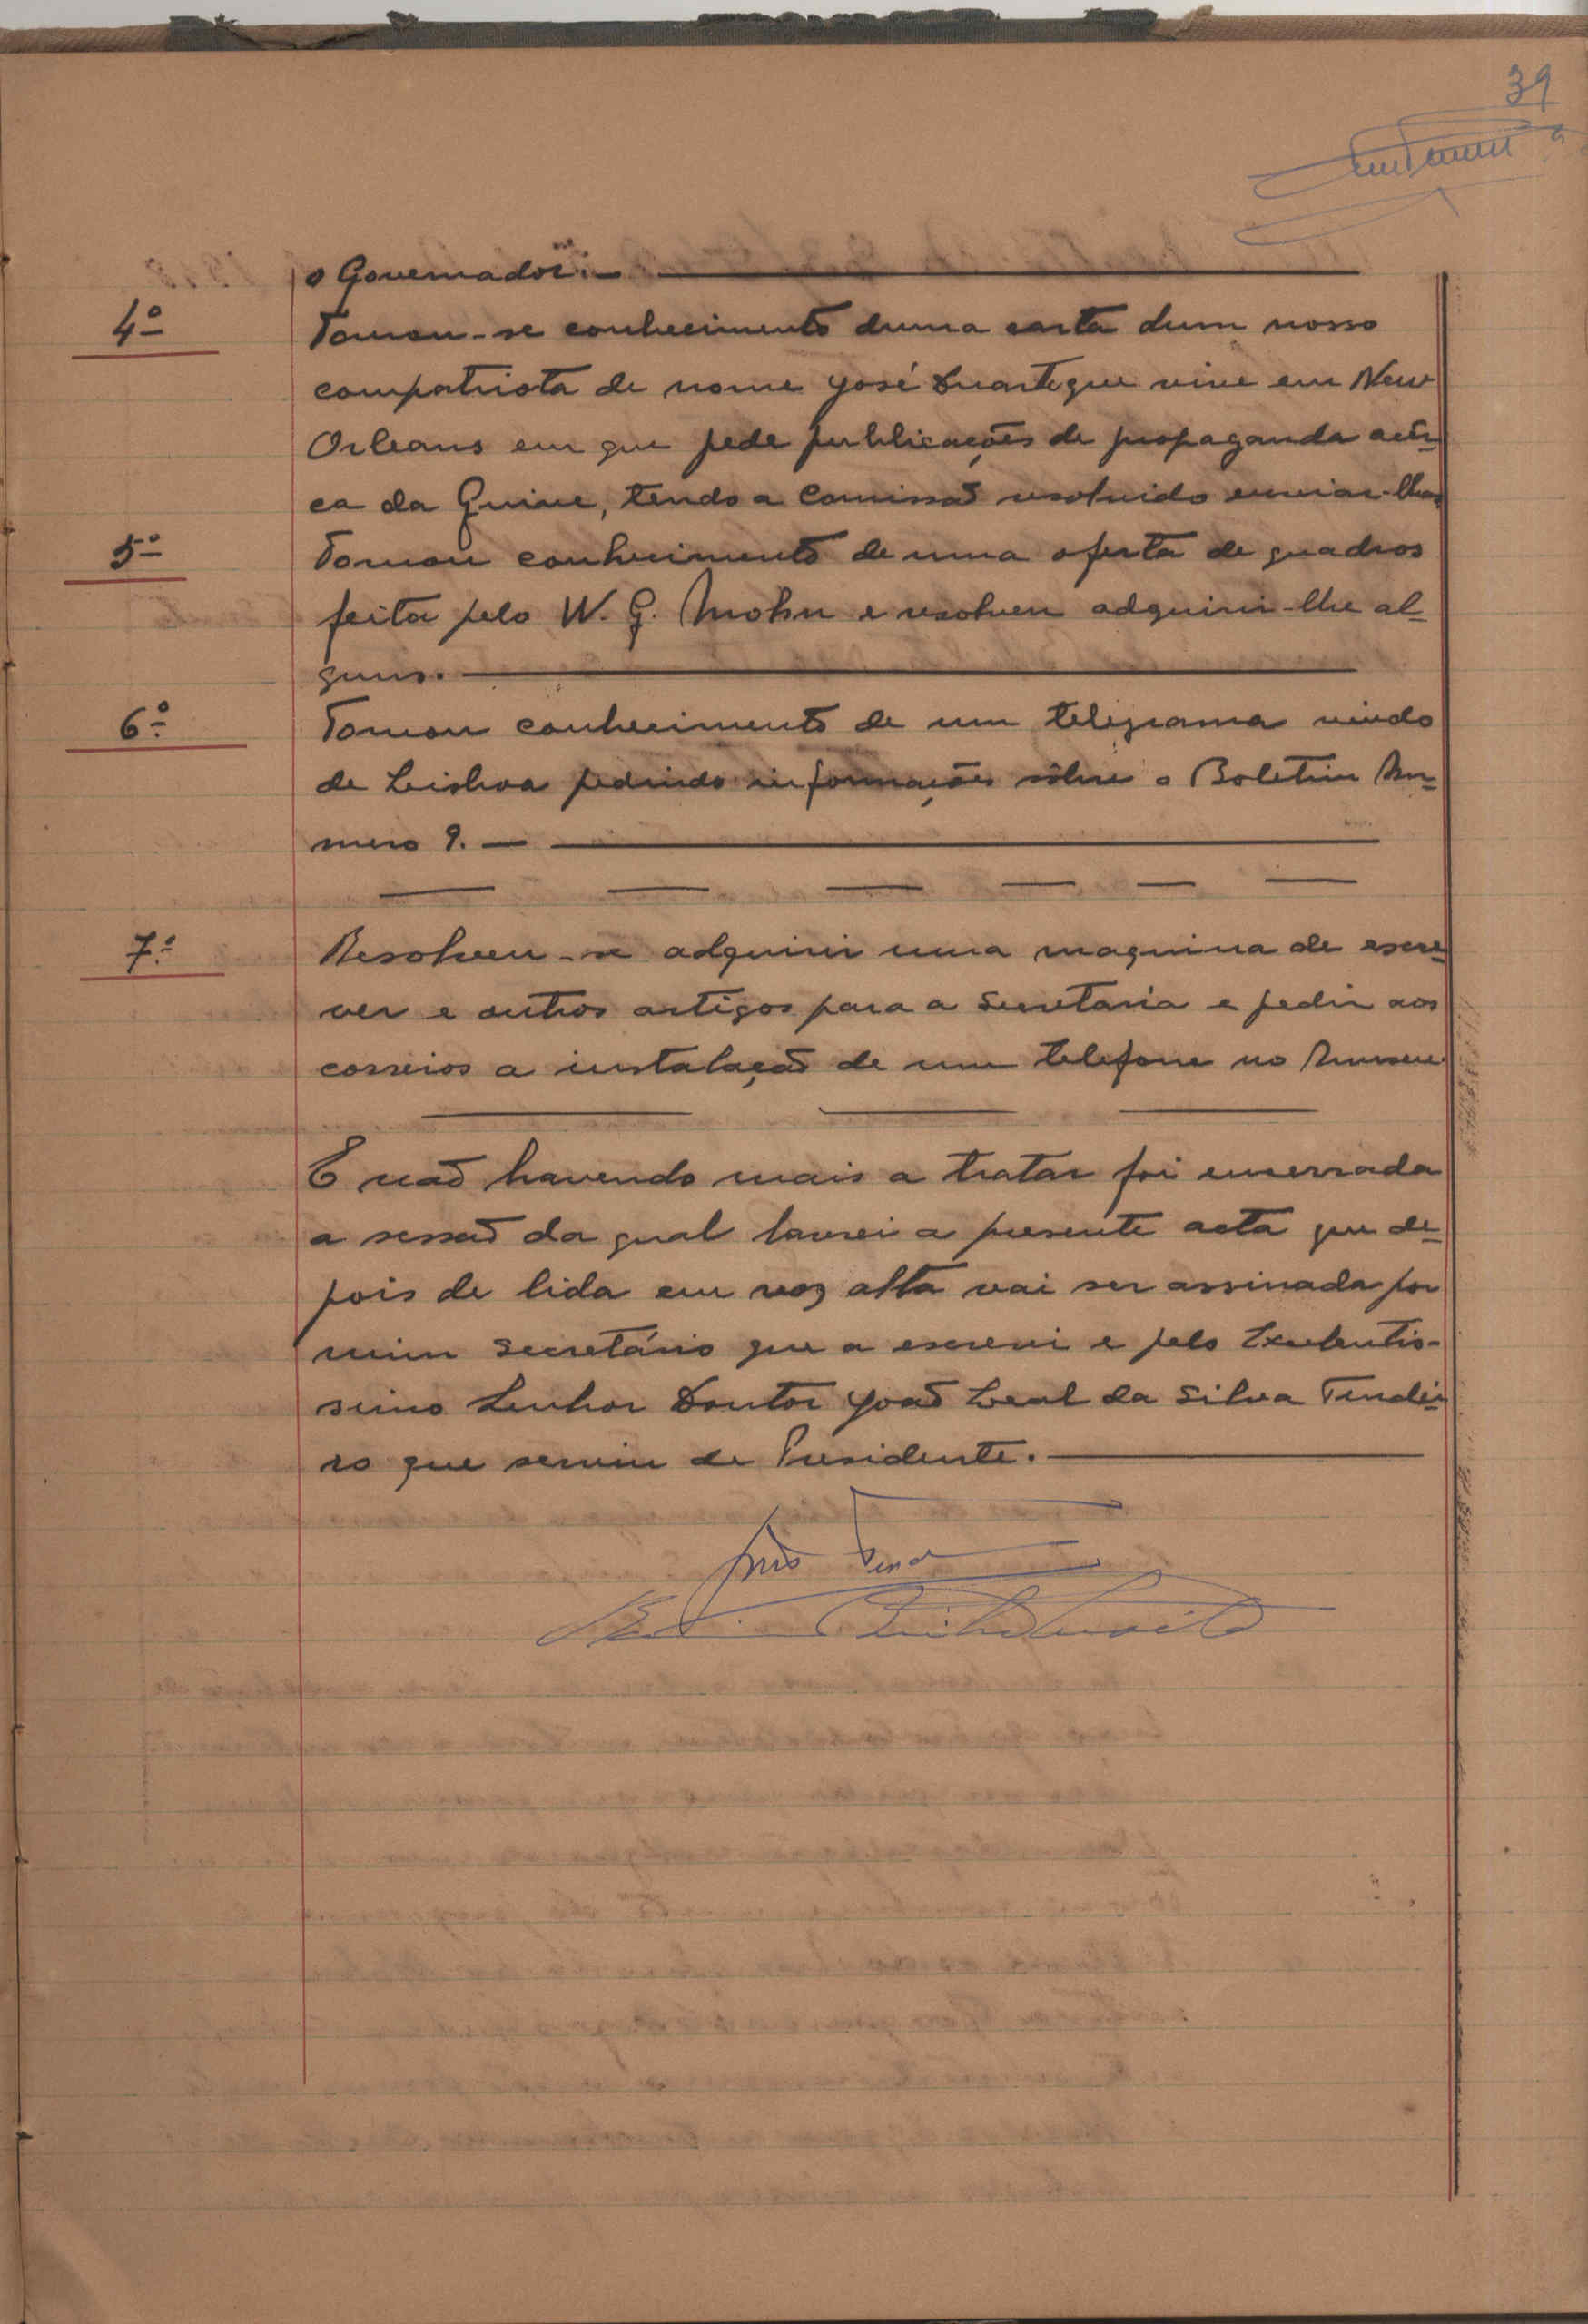 39
o Governador. —
4º
Tomou-se conhecimento duma carta dum nosso
compatriota de nome José Duarte que vive em New
Orleans em que pede publicações de propaganda acêr-
ca da Guine, tendo a Comissão resolvido enviar-lhas
5º
Tomou conhecimento de uma oferta de quadros
feita pelo W. G. Mohn e resolveu adquirir-lhe al-
guns.
6º
Tomou conhecimento de um telegrama vindo
de Lisboa pedindo informações sôbre o Boletim Nu-
mero 9. —
7º
Resolveu-se adquirir uma maquina de escre-
ver e outros artigos para a Secretaria e pedir aos
correios a instalação de um telefone no Museu
E não havendo mais a tratar foi encerrada
a sessão da qual lavrei a presente acta que de-
pois de lida em voz alta vai ser assinada por
mim Secretário que a escrevi e pelo Excelentis-
simo Senhor Doutor João Leal da Silva Tendei-
ro que serviu de Presidente.